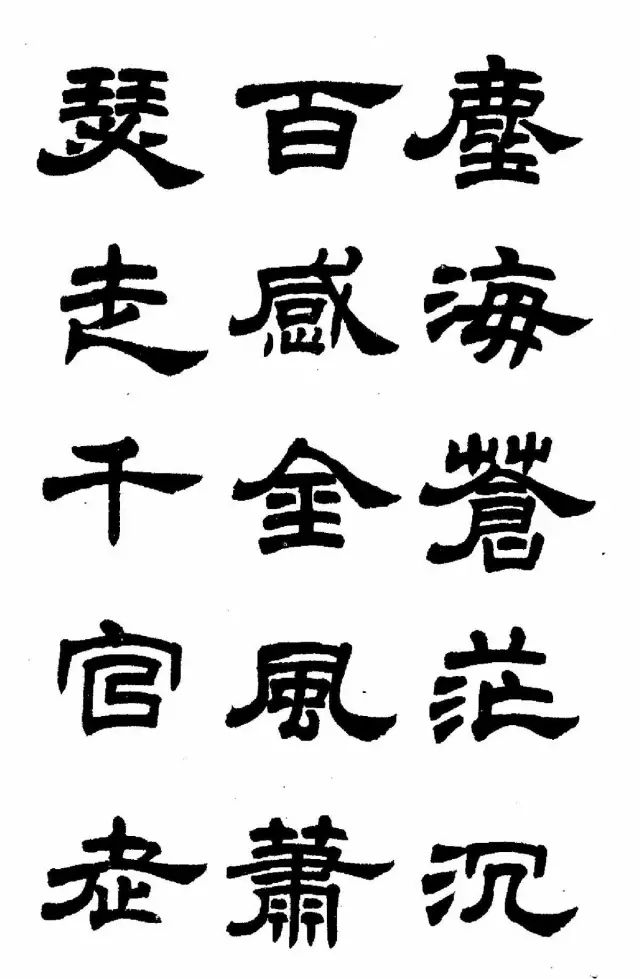 塵海蒼茫沉
百感金風蕭
瑟走千官老